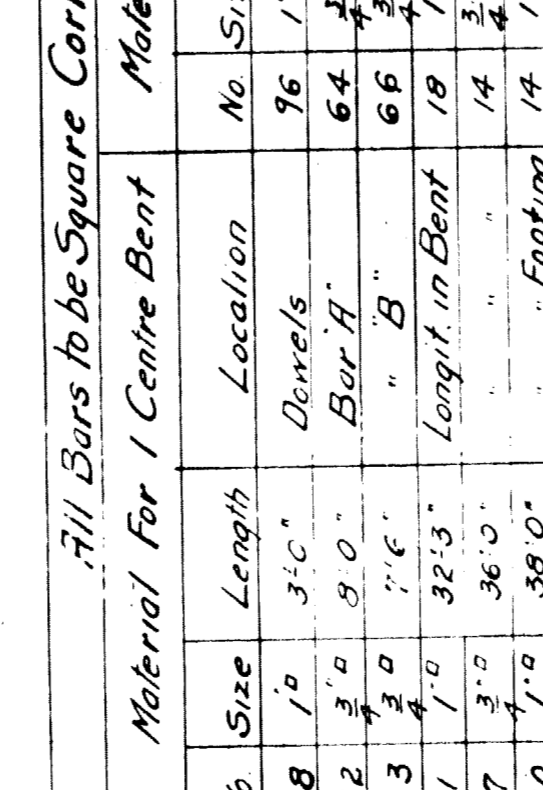 All Bars to be Square
Material For 1 Centre Bent
Size Length Location No.
8 1"□ 3'-0" Dowels 96 1
2 3/4"□ 8'0" Bar "A" 64 3/4
3 3/4"□ 7'6" " "B" 66 3/4
1 1"□ 32'-3" Longit. in Bent 18 1
7 3/4"□ 36'0" " " " 14 3/4
1"□ 38'0" " " Footing 14 1